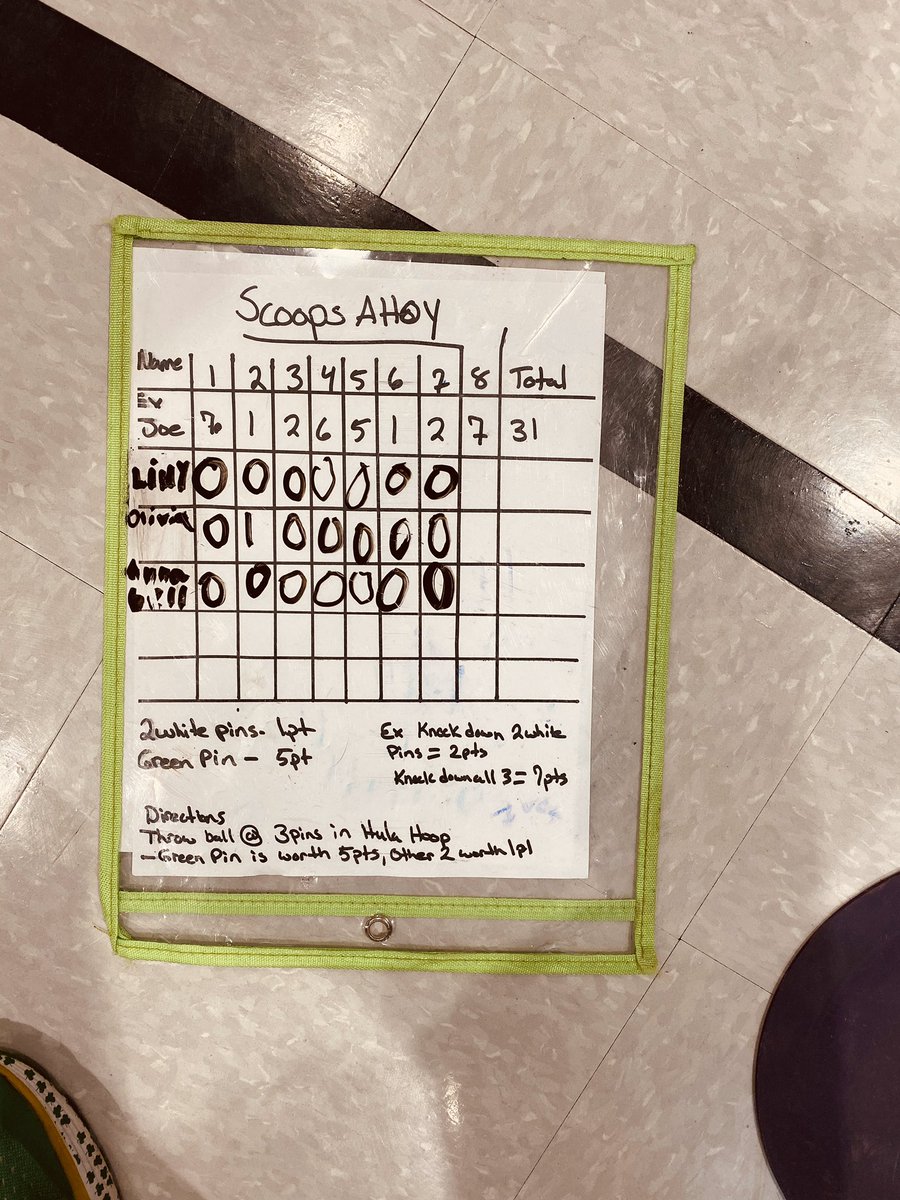 Scoops AHOY
Name 1 2 3 4 5 6 7 8 Total
Ex
Joe 7 1 2 6 5 1 2 7 31
LillY 0 0 0 0 0 0 0
Olivia 0 1 0 0 0 0 0
Anna
bill 0 0 0 0 0 0 0
2 white pins - 1pt
Green Pin - 5pt
Ex Knock down 2 white
Pins = 2pts
Knock down all 3 = 7pts
Directions
Throw ball @ 3 pins in Hula Hoop
- Green Pin is worth 5pts, Other 2 worth 1pt